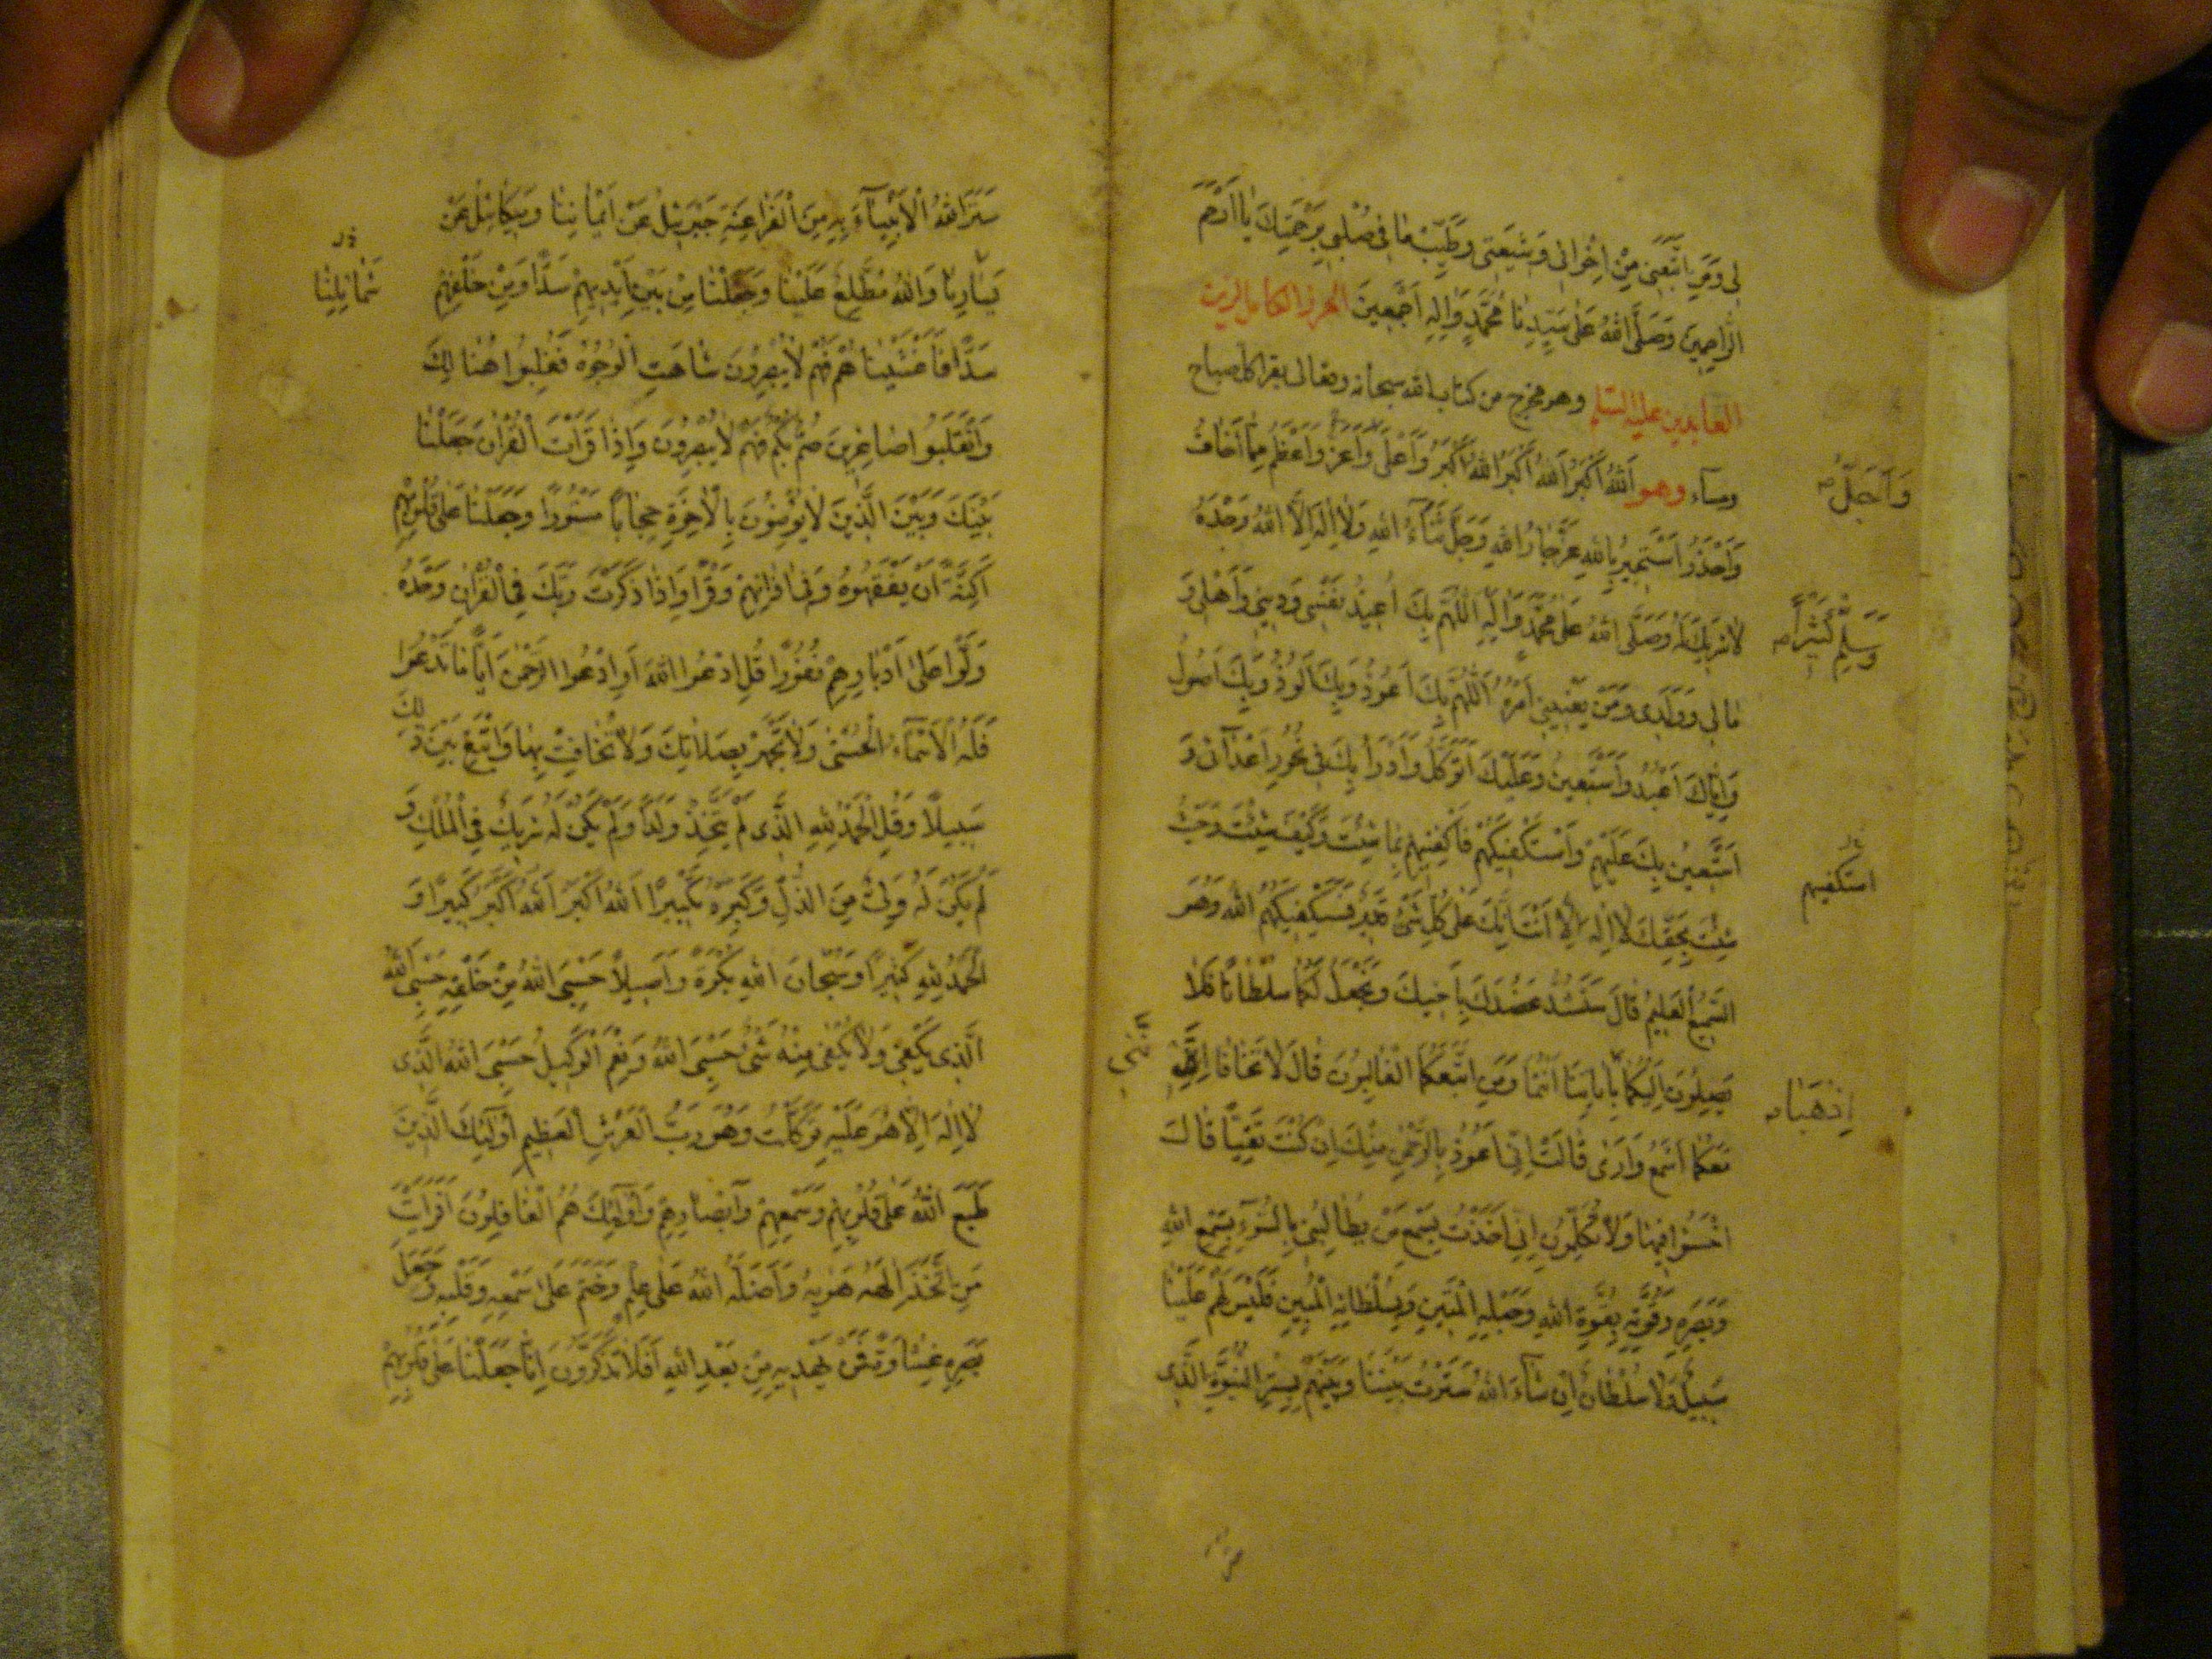 لِي وَمَنِ اتَّبَعَنِي مِنْ اِخْوَانِي وَشِيعَتِي وَطَيِّبْ مَا فِي صُلْبِي بِرَحْمَتِكَ يَا اَرْحَمَ
الرَّاحِمِينَ وَصَلَّى اللهُ عَلَى سَيِّدِنَا مُحَمَّدٍ وَالِهِ اَجْمَعِينَ الحرز الكامل لزين
العابدين عليه السلام وهو مخرج من كتاب الله سبحانه وتعالى يقرا كل صباح
ومساء وهو اَللهُ اَكْبَرُ اَللهُ اَكْبَرُ اَللهُ اَكْبَرُ وَاَعْلَى وَاَعَزُّ وَاَعْظَمُ مِمَّا اَخَافُ
وَاَجَلُّ
وَاَحْذَرُ اَسْتَجِيرُ بِاللهِ عَزَّ جَارُ اللهِ وَجَلَّ ثَنَاءُ اللهِ وَلَا اِلهَ اِلَّا اللهُ وَحْدَهُ
لَا شَرِيكَ لَهُ وَصَلَّى اللهُ عَلَى مُحَمَّدٍ وَالِهِ اَللّهُمَّ بِكَ اُعِيذُ نَفْسِي وَدِينِي وَاَهْلِي وَ
وَسَلَّمَ كَثِيراً
مَالِي وَوَلَدِي وَمَنْ يَعْنِينِي اَمْرُهُ اَللّهُمَّ بِكَ اَعُوذُ وَبِكَ اَلُوذُ وَبِكَ اَصُولُ
وَاِيَّاكَ اَعْبُدُ وَاَسْتَعِينُ وَعَلَيْكَ اَتَوَكَّلُ وَاَدْرَاُ بِكَ فِي نُحُورِ اَعْدَائِي وَ
اَسْتَعِينُ بِكَ عَلَيْهِمْ وَاَسْتَكْفِيكَهُمْ فَاكْفِنِيهِمْ بِمَا شِئْتَ وَكَيْفَ شِئْتَ وَحَيْثُ
استكفيهم
شِئْتَ بِحَقِّكَ لَا اِلهَ اِلَّا اَنْتَ اِنَّكَ عَلَى كُلِّ شَيْءٍ قَدِيرٌ فَسَيَكْفِيكَهُمُ اللهُ وَهُوَ
السَّمِيعُ الْعَلِيمُ قَالَ سَنَشُدُّ عَضُدَكَ بِاَخِيكَ وَنَجْعَلُ لَكُمَا سُلْطَانًا فَلَا
يَصِلُونَ اِلَيْكُمَا بِاٰيَاتِنَا اَنْتُمَا وَمَنِ اتَّبَعَكُمَا الْغَالِبُونَ قَالَ لَا تَخَافَا اِنَّنِي
اِذْهَبَا
مَعَكُمَا اَسْمَعُ وَاَرَى قَالَتْ اِنِّي اَعُوذُ بِالرَّحْمٰنِ مِنْكَ اِنْ كُنْتَ تَقِيًّا قَالَ
اخْسَئُوا فِيهَا وَلَا تُكَلِّمُونِ اِنِّي اَخَذْتُ بِسَمْعِ مَنْ يُطَالِبُنِي بِالسُّوءِ بِسَمْعِ اللهِ
وَبَصَرِهِ وَقُوَّتِهِ بِقُوَّةِ اللهِ وَحَبْلِهِ الْمَتِينِ وَبِسُلْطَانِهِ الْمُبِينِ فَلَيْسَ لَهُمْ عَلَيْنَا
سَبِيلٌ وَلَا سُلْطَانٌ اِنْ شَاءَ اللهُ سَتَرْتُ بَيْنَنَا وَبَيْنَهُمْ بِسِتْرِ النُّبُوَّةِ الَّذِي
سَتَرَ اللهُ الْاَنْبِيَاءَ بِهِ مِنَ الْفَرَاعِنَةِ جَبْرَئِيلُ عَنْ اَيْمَانِنَا وَمِيكَائِيلُ عَنْ
يَسَارِنَا وَاللهُ مُطَّلِعٌ عَلَيْنَا وَجَعَلْنَا مِنْ بَيْنِ اَيْدِيهِمْ سَدًّا وَمِنْ خَلْفِهِمْ
شَمَائِلِنَا
سَدًّا فَاَغْشَيْنَاهُمْ فَهُمْ لَا يُبْصِرُونَ شَاهَتِ الْوُجُوهُ فَغُلِبُوا هُنَالِكَ
وَانْقَلَبُوا صَاغِرِينَ صُمٌّ بُكْمٌ فَهُمْ لَا يُبْصِرُونَ وَاِذَا قَرَأْتَ الْقُرْاٰنَ جَعَلْنَا
بَيْنَكَ وَبَيْنَ الَّذِينَ لَا يُؤْمِنُونَ بِالْاٰخِرَةِ حِجَابًا مَسْتُورًا وَجَعَلْنَا عَلَى قُلُوبِهِمْ
اَكِنَّةً اَنْ يَفْقَهُوهُ وَفِي اٰذَانِهِمْ وَقْرًا وَاِذَا ذَكَرْتَ رَبَّكَ فِي الْقُرْاٰنِ وَحْدَهُ
وَلَّوْا عَلَى اَدْبَارِهِمْ نُفُورًا قُلِ ادْعُوا اللهَ اَوِ ادْعُوا الرَّحْمٰنَ اَيًّا مَا تَدْعُوا
فَلَهُ الْاَسْمَاءُ الْحُسْنَى وَلَا تَجْهَرْ بِصَلَاتِكَ وَلَا تُخَافِتْ بِهَا وَابْتَغِ بَيْنَ ذٰلِكَ
سَبِيلًا وَقُلِ الْحَمْدُ لِلّهِ الَّذِي لَمْ يَتَّخِذْ وَلَدًا وَلَمْ يَكُنْ لَهُ شَرِيكٌ فِي الْمُلْكِ وَ
لَمْ يَكُنْ لَهُ وَلِيٌّ مِنَ الذُّلِّ وَكَبِّرْهُ تَكْبِيرًا اَللهُ اَكْبَرُ اَللهُ اَكْبَرُ كَبِيرًا وَ
الْحَمْدُ لِلّهِ كَثِيرًا وَسُبْحَانَ اللهِ بُكْرَةً وَاَصِيلًا حَسْبِيَ اللهُ مِنْ خَلْقِهِ حَسْبِيَ اللهُ
الَّذِي يَكْفِي وَلَا يَكْفِي مِنْهُ شَيْءٌ حَسْبِيَ اللهُ وَنِعْمَ الْوَكِيلُ حَسْبِيَ اللهُ الَّذِي
لَا اِلهَ اِلَّا هُوَ عَلَيْهِ تَوَكَّلْتُ وَهُوَ رَبُّ الْعَرْشِ الْعَظِيمِ اُولٰئِكَ الَّذِينَ
طَبَعَ اللهُ عَلَى قُلُوبِهِمْ وَسَمْعِهِمْ وَاَبْصَارِهِمْ وَاُولٰئِكَ هُمُ الْغَافِلُونَ اَفَرَاَيْتَ
مَنِ اتَّخَذَ اِلٰهَهُ هَوٰيهُ وَاَضَلَّهُ اللهُ عَلَى عِلْمٍ وَخَتَمَ عَلَى سَمْعِهِ وَقَلْبِهِ وَجَعَلَ
بَصَرِهِ غِشَاوَةً فَمَنْ يَهْدِيهِ مِنْ بَعْدِ اللهِ اَفَلَا تَذَكَّرُونَ اِنَّا جَعَلْنَا عَلَى قُلُوبِهِمْ